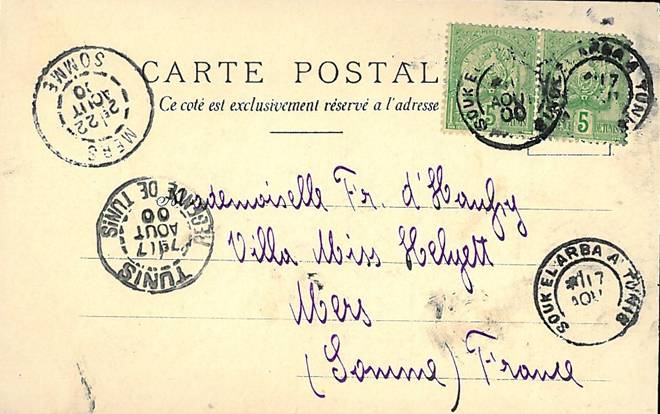 CARTE POSTALE
Ce coté est exclusivement réservé a l'adresse
MERS
SOMME
22
AOUT
00
TUNIS
REGENCE DE TUNIS
17
AOUT
00
SOUK EL ARBA A TUNIS
AOU
00
5
SOUK EL ARBA A TUNIS
17
5
SOUK EL ARBA A TUNIS
17
AOU
Mademoiselle Fr. d'Haufry
Villa Miss Helyett
Mers
(Somme) France